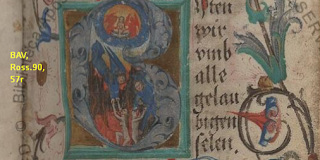 BAV,
Ross.90,
57r
sten
wir
vmb
alle
gelau
bigen
selen.